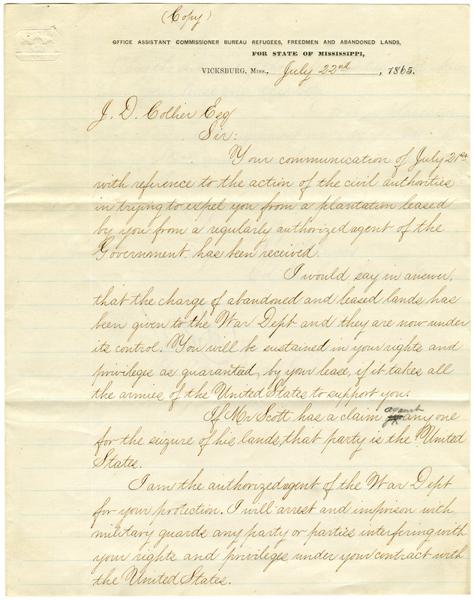 (Copy)
OFFICE ASSISTANT COMMISSIONER BUREAU REFUGEES, FREEDMEN AND ABANDONED LANDS,
FOR STATE OF MISSISSIPPI,
VICKSBURG, Miss., July 22nd, 1865.
J. D. Collier Esq
Sir:
Your communication of July 21st
with reference to the action of the civil authorities
in trying to expel you from a plantation leased
by you from a regularly authorized agent of the
Government has been received.
I would say in answer,
that the charge of abandoned and leased lands has
been given to the War Dept and they are now under
its control. You will be sustained in your rights and
privileges as guaranteed by your lease, if it takes all
the armies of the United States to support you.
If Mr Scott has a claim against any one
for the seizure of his lands, that party is the United
States.
I am the authorized agent of the War Dept
for your protection. I will arrest and imprison with
military guards any party or parties interfering with
your rights and privileges under your contract with
the United States.